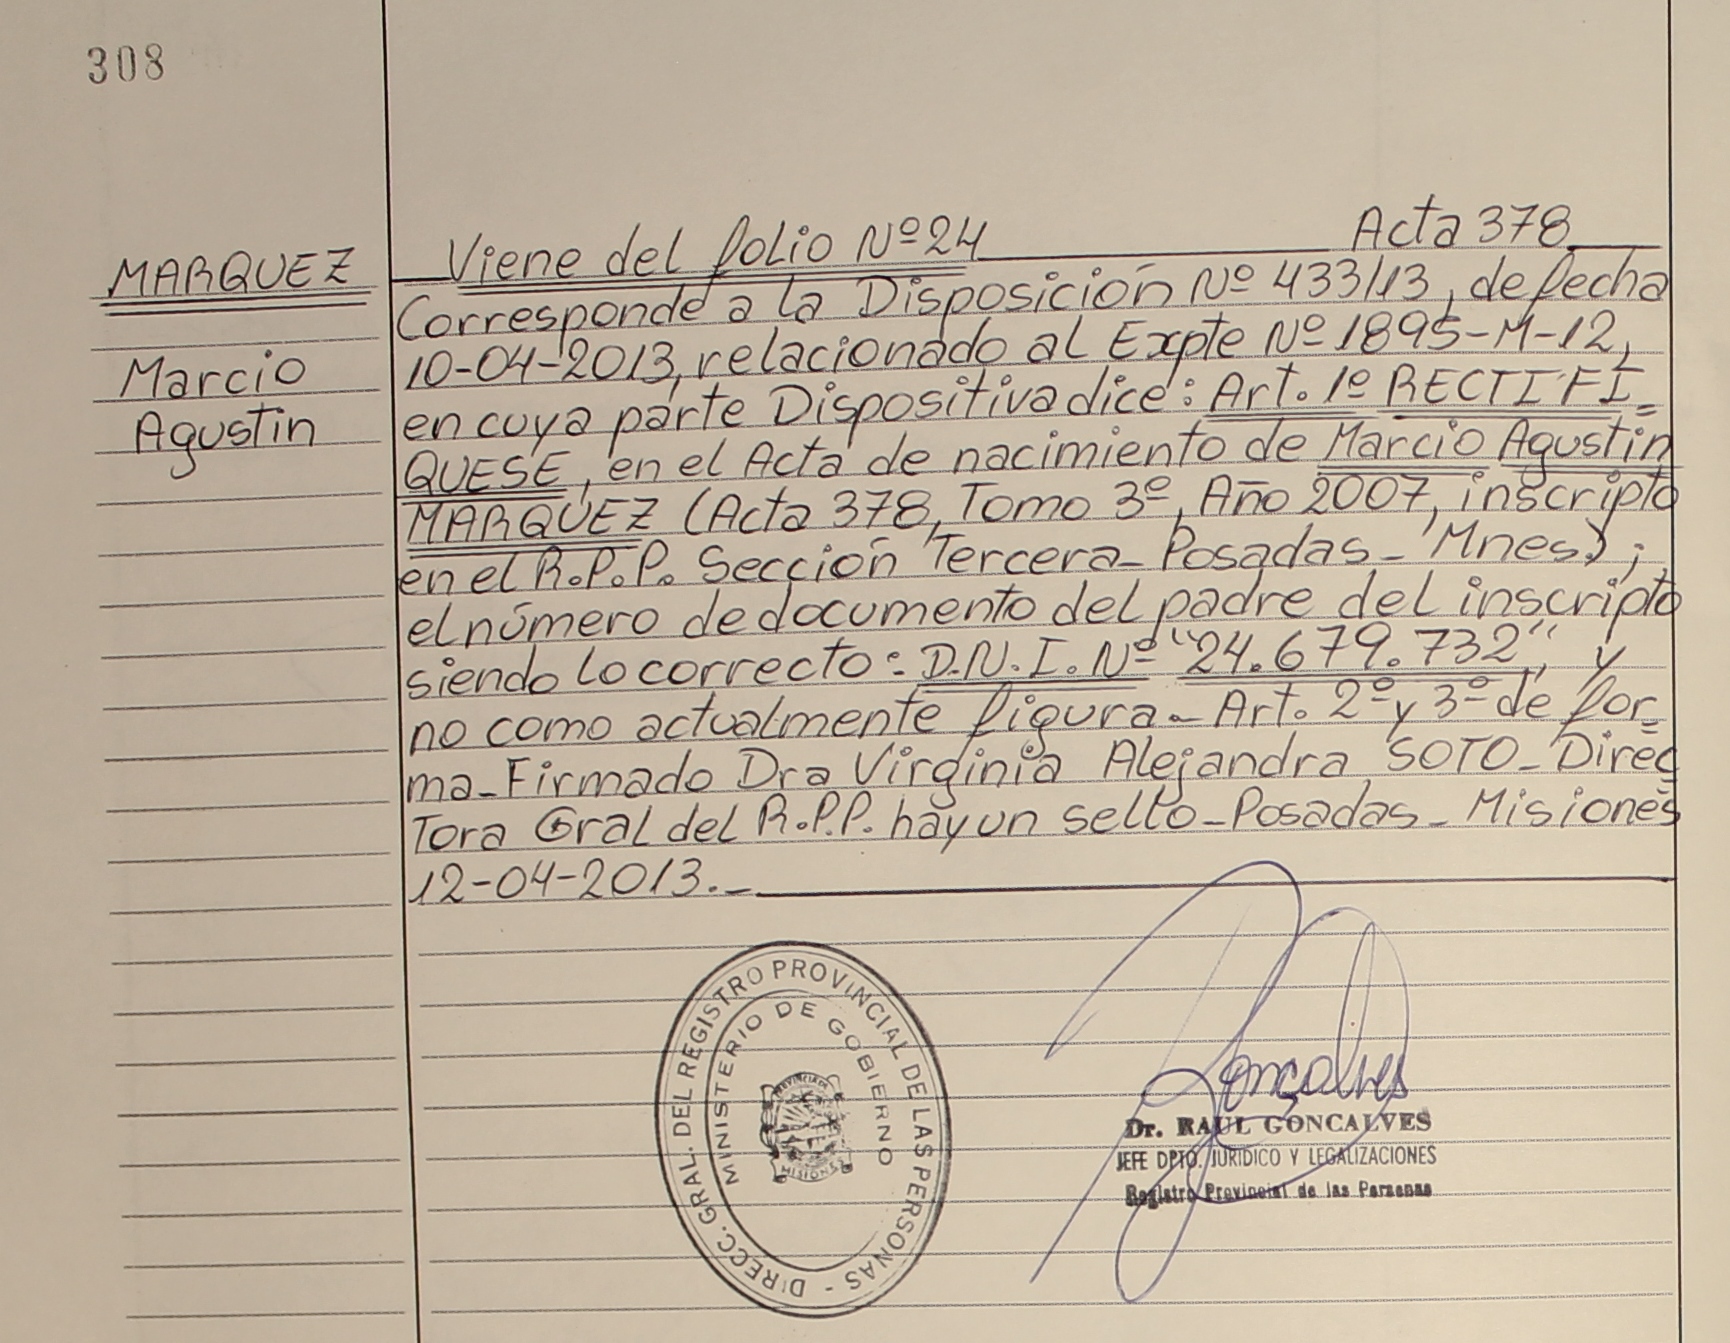 308
MARQUEZ
Marcio
Agustin
Viene del folio Nº 24 Acta 378
Corresponde a la Disposición Nº 433/13, de fecha
10-04-2013, relacionado al Expte Nº 1895-M-12,
en cuya parte Dispositiva dice: Art. 1º RECTIFI=
QUESE, en el Acta de nacimiento de Marcio Agustin
MARQUEZ (Acta 378, Tomo 3º, Año 2007, inscripto
en el R.P.P. Sección Tercera- Posadas- Mnes);
el número de documento del padre del inscripto
siendo lo correcto: D.N.I. Nº "24.679.732", y
no como actualmente figura.- Art. 2º y 3º de for=
ma- Firmado Dra Virginia Alejandra SOTO- Direc
Tora Gral del R.P.P. hay un sello- Posadas- Misiones
12-04-2013.-
DIRECC. GRAL. DEL REGISTRO PROVINCIAL DE LAS PERSONAS -
MINISTERIO DE GOBIERNO
PROVINCIA DE
MISIONES
Goncalves
Dr. RAUL GONCALVES
JEFE DPTO. JURIDICO Y LEGALIZACIONES
Registro Provincial de las Personas